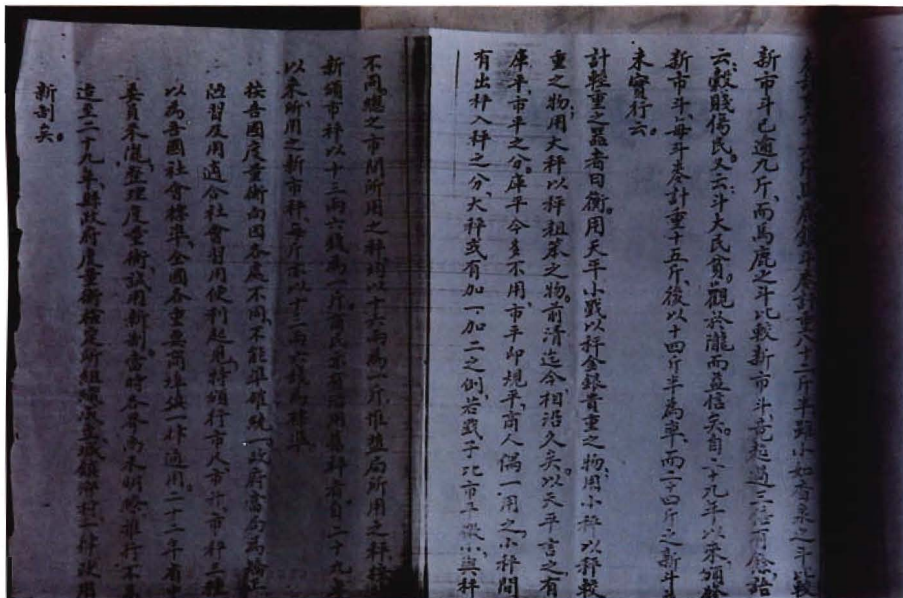 六斤馬鹿鎮斗卷計重八十二斤半雖小如香泉之斗比較
新市斗已逾九斤、而馬鹿之斗比較新市斗、竟超過三倍有餘、語
云、穀賤傷民。又云、斗大民貧。觀於隴而益信矣。自二十九年以來、頒發
新市斗、每斗卷計重十五斤、後以十四斤半為率、而二四斤之新斗
未實行云。
計輕重之器者曰衡。用天平小戥以秤金銀貴重之物、用小秤以秤較
重之物、用大秤以秤粗笨之物。前清迄今相沿久矣。以天平言之、有
庫平、市平之分。庫平今多不用、市平即規平、商人偶一用之、小秤間
有出秤入秤之分、大秤或有加一、加二之例、若戥子比市平微小、與秤
不同。總之市間所用之秤、均以十六兩為一斤、惟鹽局所用之秤
新頒市秤、以十三兩六錢為一斤、商民亦有沿用舊秤者、自二十九年
以來、所用之新市秤、每斤亦以十三兩六錢為標準。
按吾國度量衡向因各處不同、不能準確統一、政府當局為矯正
陋習及用適合社會習用便利起見、特頒行市尺、市升、市秤三種
以為吾國社會標準、全國各重要商埠填一律通用。二十二年省中
委員來隴、整理度量衡、試用新制。當時各界尚未明瞭、推行不
迨至二十九年、縣政府度量衡檢定所組織成立、城鎮鄉村、一律改用
新制矣。